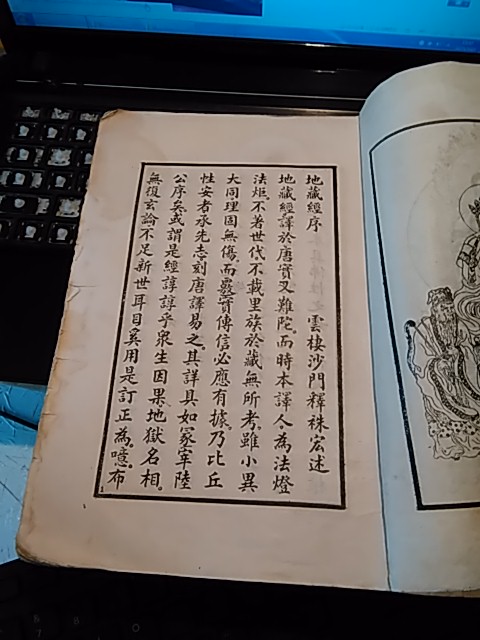 地藏經序
雲棲沙門釋袾宏述
地藏經譯於唐實叉難陀。而時本譯人為法燈
法炬。不著世代。不載里族。於藏無所考。雖小異
大同。理固無傷。而覈實傳信。必應有據。乃比丘
性安者。承先志刻唐譯易之。其詳具如冢宰陸
公序矣。或謂是經諄諄乎眾生因果地獄名相。
無復玄論。不足新世耳目。奚用是訂正為。噫。布